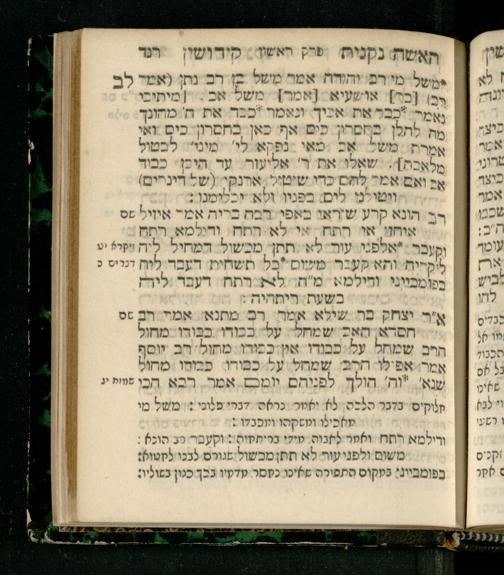 האשה נקנית פרק ראשון קידושין רנד
לב *משל מי רב יהודה אמר משל בן רב נתן (אמר
רב) [בר] אושעיא [אמר] משל אב. [מיתיבי
נאמר *כבד את אביך ונאמר *כבד את ה' מהונך
מה להלן בחסרון כיס אף כאן בחסרון כיס ואי
אמרת משל אב מאי נפקא לי' מיני' לביטול
מלאכה]. שאלו את ר' אליעזר עד היכן כבוד
אב ואם אמר להם כדי שיטול ארנקי (של דינרים)
ויטילנו לים בפניו ולא יכלימנו:
רב הונא קרע שיראי באפי רבה בריה אמר איזול שם
איחזי אי רתח אי לא רתח ודילמא רתח
וקעבר *אלפני עור לא תתן מכשול דמחיל ליה ויקרא יט
ליקריה והא קעבר משום *בל תשחית דעבד ליה דברים כ
בפומבייני ודילמא מ"ה לא רתח דעבד ליה
בשעת ריתחיה:
א"ר יצחק בר שילא אמר רב מתנא אמר רב שם
חסדא האב שמחל על כבודו כבודו מחול
הרב שמחל על כבודו אין כבודו מחול רב יוסף
אמר אפילו הרב שמחל על כבודו כבודו מחול
שנא' *וה' הולך לפניהם יומם אמר רבא הכי שמות יג
חלוקים בדבר הלכה לא יאמר נראה דברי פלוני: משל מי
מאכילו ומשקהו ומכבדו:
ודילמא רתח ואמר לאבוה מידי בריתחיה: וקעבר רב הונא:
משום ולפני עור לא תתן מכשול שגורם לבנו לחטוא:
בפומבייני: במקום התפירה שאינו נחסר מדמיו בכך כגון בשוליו: